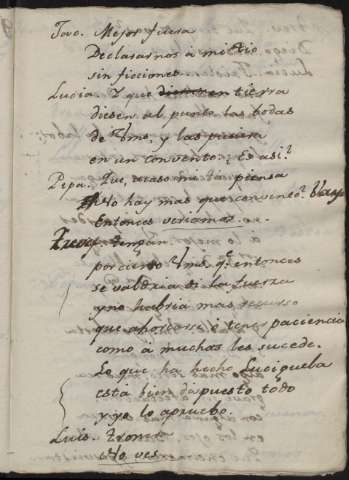 Mejor fuera
Declararnos à mi tio
sin ficciones.
Lucia. Y que en tierra
diesen al punto las bodas
de Vms. y las
en un convento: Es asi?
Pepa. Que, acaso piensa
No hay mas que convento?
Entonces veriamos.
Tengan
por cierto Vms. qe. entonces
se valdria de la fuerza
y no habria mas recurso
que ahorcarse ò tener paciencia
como à muchas les sucede.
Lo que ha hecho
està bien dispuesto todo
y yo lo apruebo.
Luis.
No ves